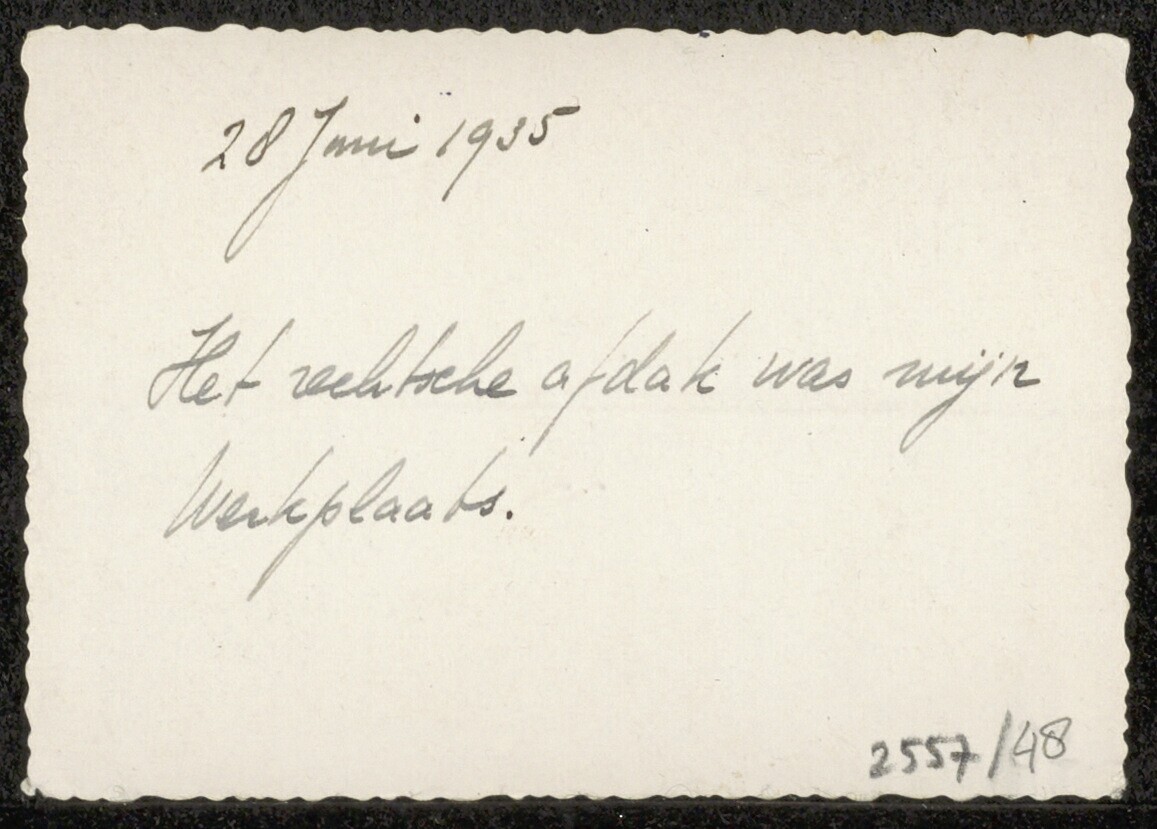 28 Juni 1935
Het rechtsche afdak was mijn
werkplaats.
2557/48